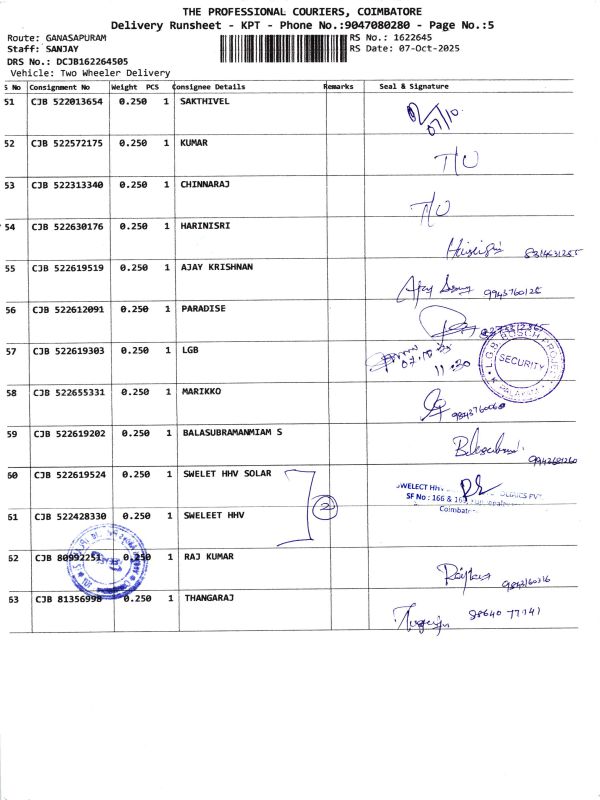 THE PROFESSIONAL COURIERS, COIMBATORE
Delivery Runsheet - KPT - Phone No.:9047080280 - Page No.:5
Route: GANASAPURAM
RS No.: 1622645
Staff: SANJAY
RS Date: 07-Oct-2025
DRS No.: DCJB162264505
Vehicle: Two Wheeler Delivery
S No Consignment No Weight PCS Consignee Details Remarks Seal & Signature
51 CJB 522013654 0.250 1 SAKTHIVEL
07/10
52 CJB 522572175 0.250 1 KUMAR T/O
53 CJB 522313340 0.250 1 CHINNARAJ T/O
54 CJB 522630176 0.250 1 HARINISRI
55 CJB 522619519 0.250 1 AJAY KRISHNAN Ajay 9943760125
56 CJB 522612091 0.250 1 PARADISE
57 CJB 522619303 0.250 1 LGB
07.10.25
11:30
L.G.B BOSCH PROJECT
SECURITY
58 CJB 522655331 0.250 1 MARIKKO
59 CJB 522619202 0.250 1 BALASUBRAMANMIAM S
60 CJB 522619524 0.250 1 SWELET HHV SOLAR
2
SWELECT HHV
SF No : 166 & 16
Coimbator
61 CJB 522428330 0.250 1 SWELEET HHV
62 CJB 80992251 0.250 1 RAJ KUMAR
63 CJB 81356998 0.250 1 THANGARAJ 98640 77141